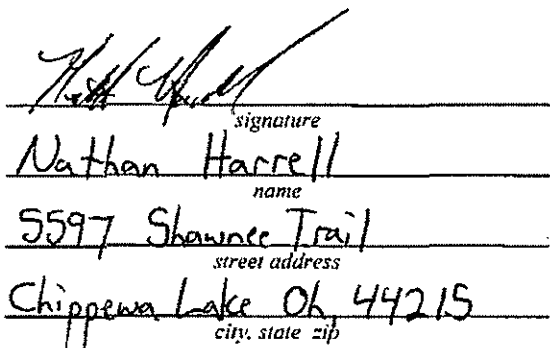 signature
Nathan Harrell
name
5597 Shawnee Trail
street address
Chippewa Lake Oh, 44215
city, state zip